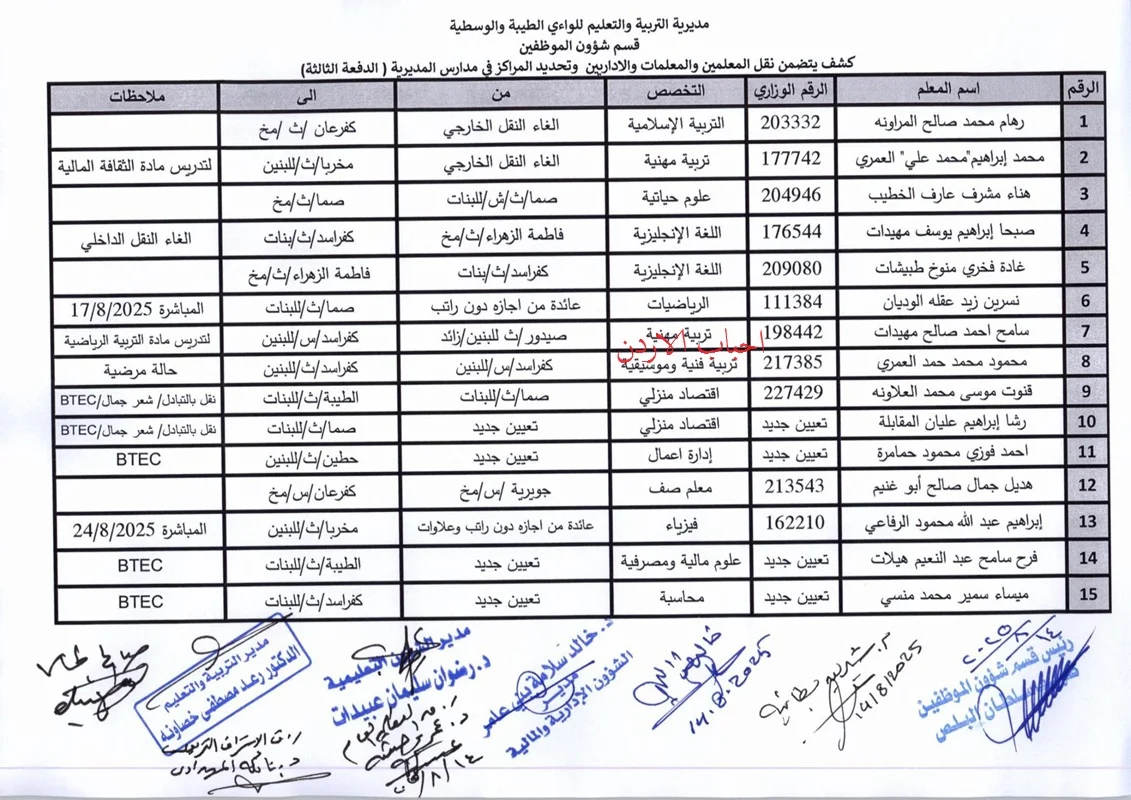 مديرية التربية والتعليم للواءي الطيبة والوسطية
قسم شؤون الموظفين
كشف يتضمن نقل المعلمين والمعلمات والاداريين وتحديد المراكز في مدارس المديرية ( الدفعة الثالثة)
الرقم اسم المعلم الرقم الوزاري التخصص من الى ملاحظات
1 رهام محمد صالح المراونه 203332 التربية الإسلامية الغاء النقل الخارجي كفرعان /ث /مخ
2 محمد إبراهيم"محمد علي" العمري 177742 تربية مهنية الغاء النقل الخارجي مخربا/ث/للبنين لتدريس مادة الثقافة المالية
3 هناء مشرف عارف الخطيب 204946 علوم حياتية صما/ث/ش/للبنات صما/ث/مخ
4 صبحا إبراهيم يوسف مهيدات 176544 اللغة الإنجليزية فاطمة الزهراء/ث/مخ كفراسد/ث/بنات الغاء النقل الداخلي
5 غادة فخري منوخ طبيشات 209080 اللغة الإنجليزية كفراسد/ث/بنات فاطمة الزهراء/ث/مخ
6 نسرين زيد عقله الوديان 111384 الرياضيات عائدة من اجازه دون راتب صما/ث/للبنات المباشرة 17/8/2025
7 سامح احمد صالح مهيدات 198442 تربية مهنية صيدور/ث للبنين/زائد كفراسد/س/للبنين لتدريس مادة التربية الرياضية
احباب الاردن
8 محمود محمد حمد العمري 217385 تربية فنية وموسيقية كفراسد/س/للبنين كفراسد/ث/للبنين حالة مرضية
9 قنوت موسى محمد العلاونه 227429 اقتصاد منزلي صما/ث/للبنات الطيبة/ث/للبنات نقل بالتبادل/ شعر جمال/BTEC
10 رشا إبراهيم عليان المقابلة تعيين جديد اقتصاد منزلي تعيين جديد صما/ث/للبنات نقل بالتبادل/ شعر جمال/BTEC
11 احمد فوزي محمود حمامرة تعيين جديد إدارة اعمال تعيين جديد حطين/ث/للبنين BTEC
12 هديل جمال صالح أبو غنيم 213543 معلم صف جويرية /س/مخ كفرعان/س/مخ
13 إبراهيم عبد الله محمود الرفاعي 162210 فيزياء عائدة من اجازه دون راتب وعلاوات مخربا/ث/للبنين المباشرة 24/8/2025
14 فرح سامح عبد النعيم هيلات تعيين جديد علوم مالية ومصرفية تعيين جديد الطيبة/ث/للبنات BTEC
15 ميساء سمير محمد منسي تعيين جديد محاسبة تعيين جديد كفراسد/ث/للبنات BTEC
رئيس قسم شؤون الموظفين
14/8/2025
14.8.2025
د. خالد سلامة بني عامر
مدير
الشؤون الإدارية والمالية
مدير الشؤون التعليمية
د. رضوان سليمان عبيدات
مدير التربية والتعليم
الدكتور رعد مصطفى خصاونه